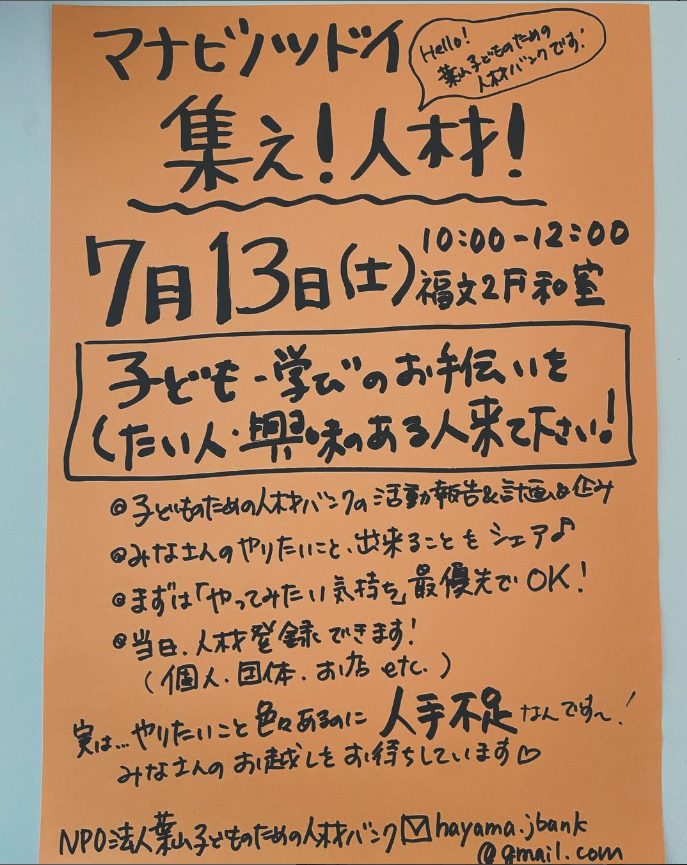 マナビノツドイ
Hello!
葉山子どものための
人材バンクです!
集え!人材!
7月13日(土)
10:00-12:00
福文2F和室
子ども・学びのお手伝いを
したい人・興味のある人来て下さい!
◎子どものための人材バンクの活動報告&計画&企み
◎みなさんのやりたいこと、出来ることをシェア♪
◎まずは「やってみたい気持ち」最優先でOK!
◎当日、人材登録できます!
(個人・団体・お店 etc.)
実は…やりたいこと色々あるのに人手不足なんです〜!
みなさんのお越しをお待ちしています♡
NPO法人葉山子どものための人材バンク✉hayama.jbank
@gmail.com